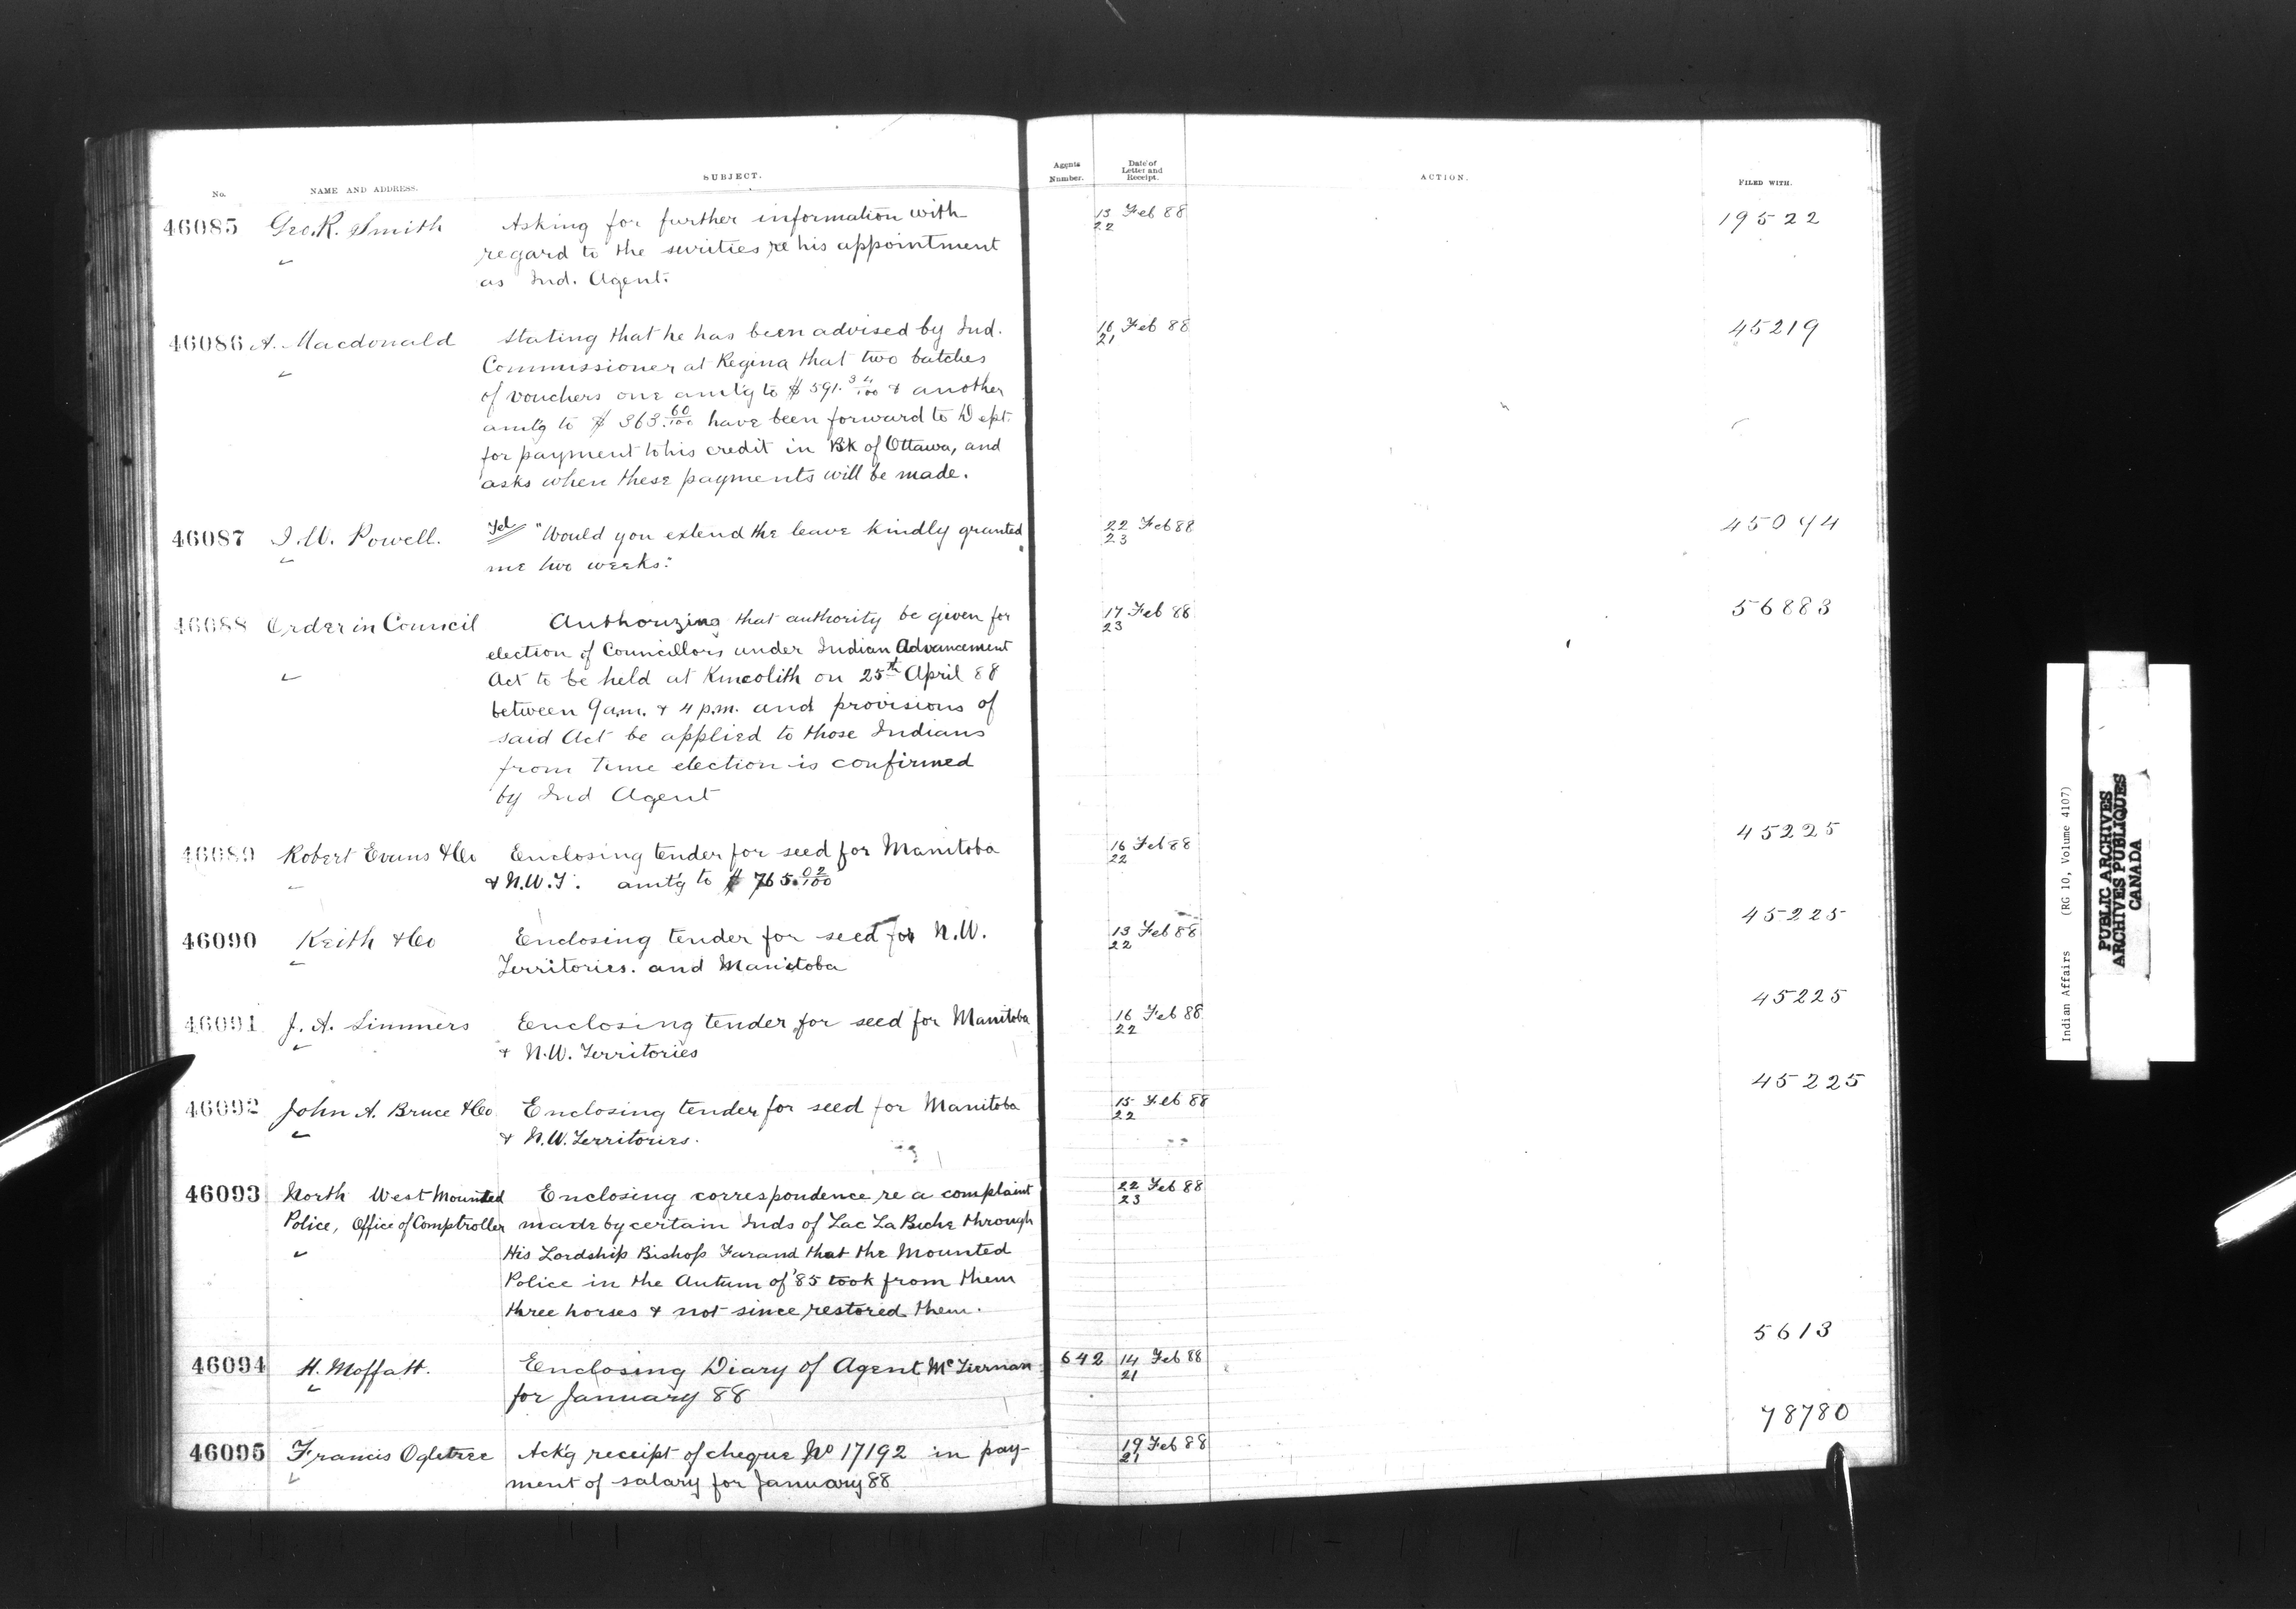 No. NAME AND ADDRESS. SUBJECT. Agents Number. Date of Letter and Receipt. ACTION. FILED WITH.
46085 Geo. R. Smith Asking for further information with 13 Feb 88 19522
regard to the surities re his appointment 22
as Ind. Agent.
46086 A. Macdonald Stating that he has been advised by Ind. 16 Feb 88 45219
Commissioner at Regina that two batches 21
of vouchers one amt'g to $591.34/100 & another
amt'g to $363.60/100 have been forward to Dept.
for payment to his credit in Bk of Ottawa, and
asks when these payments will be made.
46087 I. W. Powell. Tel "Would you extend the leave kindly granted 22 Feb 88 45074
me two weeks." 23
46088 Order in Council Authorizing that authority be given for 17 Feb 88 56883
election of Councillors under Indian Advancement 23
Act to be held at Kincolith on 25th April 88
between 9 a.m. & 4 p.m. and provisions of
said Act be applied to those Indians
from time election is confirmed
by Ind Agent
46089 Robert Evans & Co Enclosing tender for seed for Manitoba 16 Feb 88 45225
& N.W.T. amt'g to $765.02/100 22
46090 Keith & Co Enclosing tender for seed for N.W. 13 Feb 88 45225
Territories. and Manitoba 22
46091 J. A. Simmers Enclosing tender for seed for Manitoba 16 Feb 88 45225
& N.W. Territories 22
46092 John A. Bruce & Co. Enclosing tender for seed for Manitoba 15 Feb 88 45225
& N.W. Territories. 22
46093 North West Mounted Enclosing correspondence re a complaint 22 Feb 88
Police, Office of Comptroller made by certain Inds of Lac La Biche through 23
His Lordship Bishop Farand that the Mounted
Police in the Autum of '85 took from them
three horses & not since restored them.
46094 H. Moffatt. Enclosing Diary of Agent McTiernan 642 14 Feb 88 5613
for January 88 21
46095 Francis Ogletree Ack'g receipt of cheque No 17192 in pay- 19 Feb 88 78780
ment of salary for January 88 21
Indian Affairs (RG 10, Volume 4107)
PUBLIC ARCHIVES
ARCHIVES PUBLIQUES
CANADA